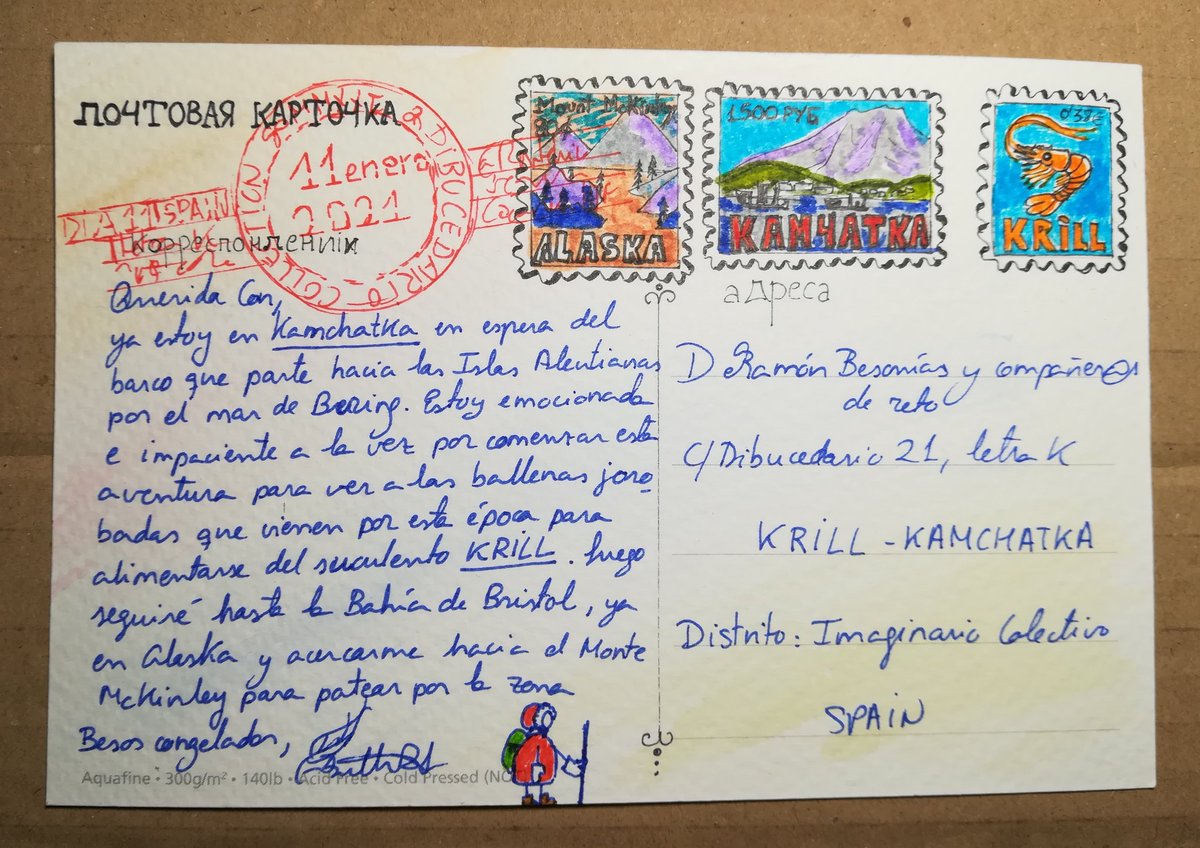 ПОЧТОВАЯ КАРТОЧКА
11 enero
2021
DIBUCEDARIO
SPAIN
Mount McKinley
ALASKA
1500 РУБ
КАМЧАТКА
KRILL
Корреспонденции
адреса
Querida Con,
ya estoy en Kamchatka en espera del
barco que parte hacia las Islas Aleutianas
por el mar de Bering. Estoy emocionada
e impaciente a la vez por comenzar esta
aventura para ver a las ballenas joro
badas que vienen por esta época para
alimentarse del suculento KRILL. Luego
seguiré hasta la Bahía de Bristol, ya
en Alaska y acercarme hacia el Monte
McKinley para patear por la zona
Besos congelados,
Aquafine • 300g/m² • 140lb • Acid Free • Cold Pressed (NO
D Ramón Besonías y compañer@s
de reto
C/Dibucedario 21, letra K
KRILL - KAMCHATKA
Distrito: Imaginario Colectivo
SPAIN